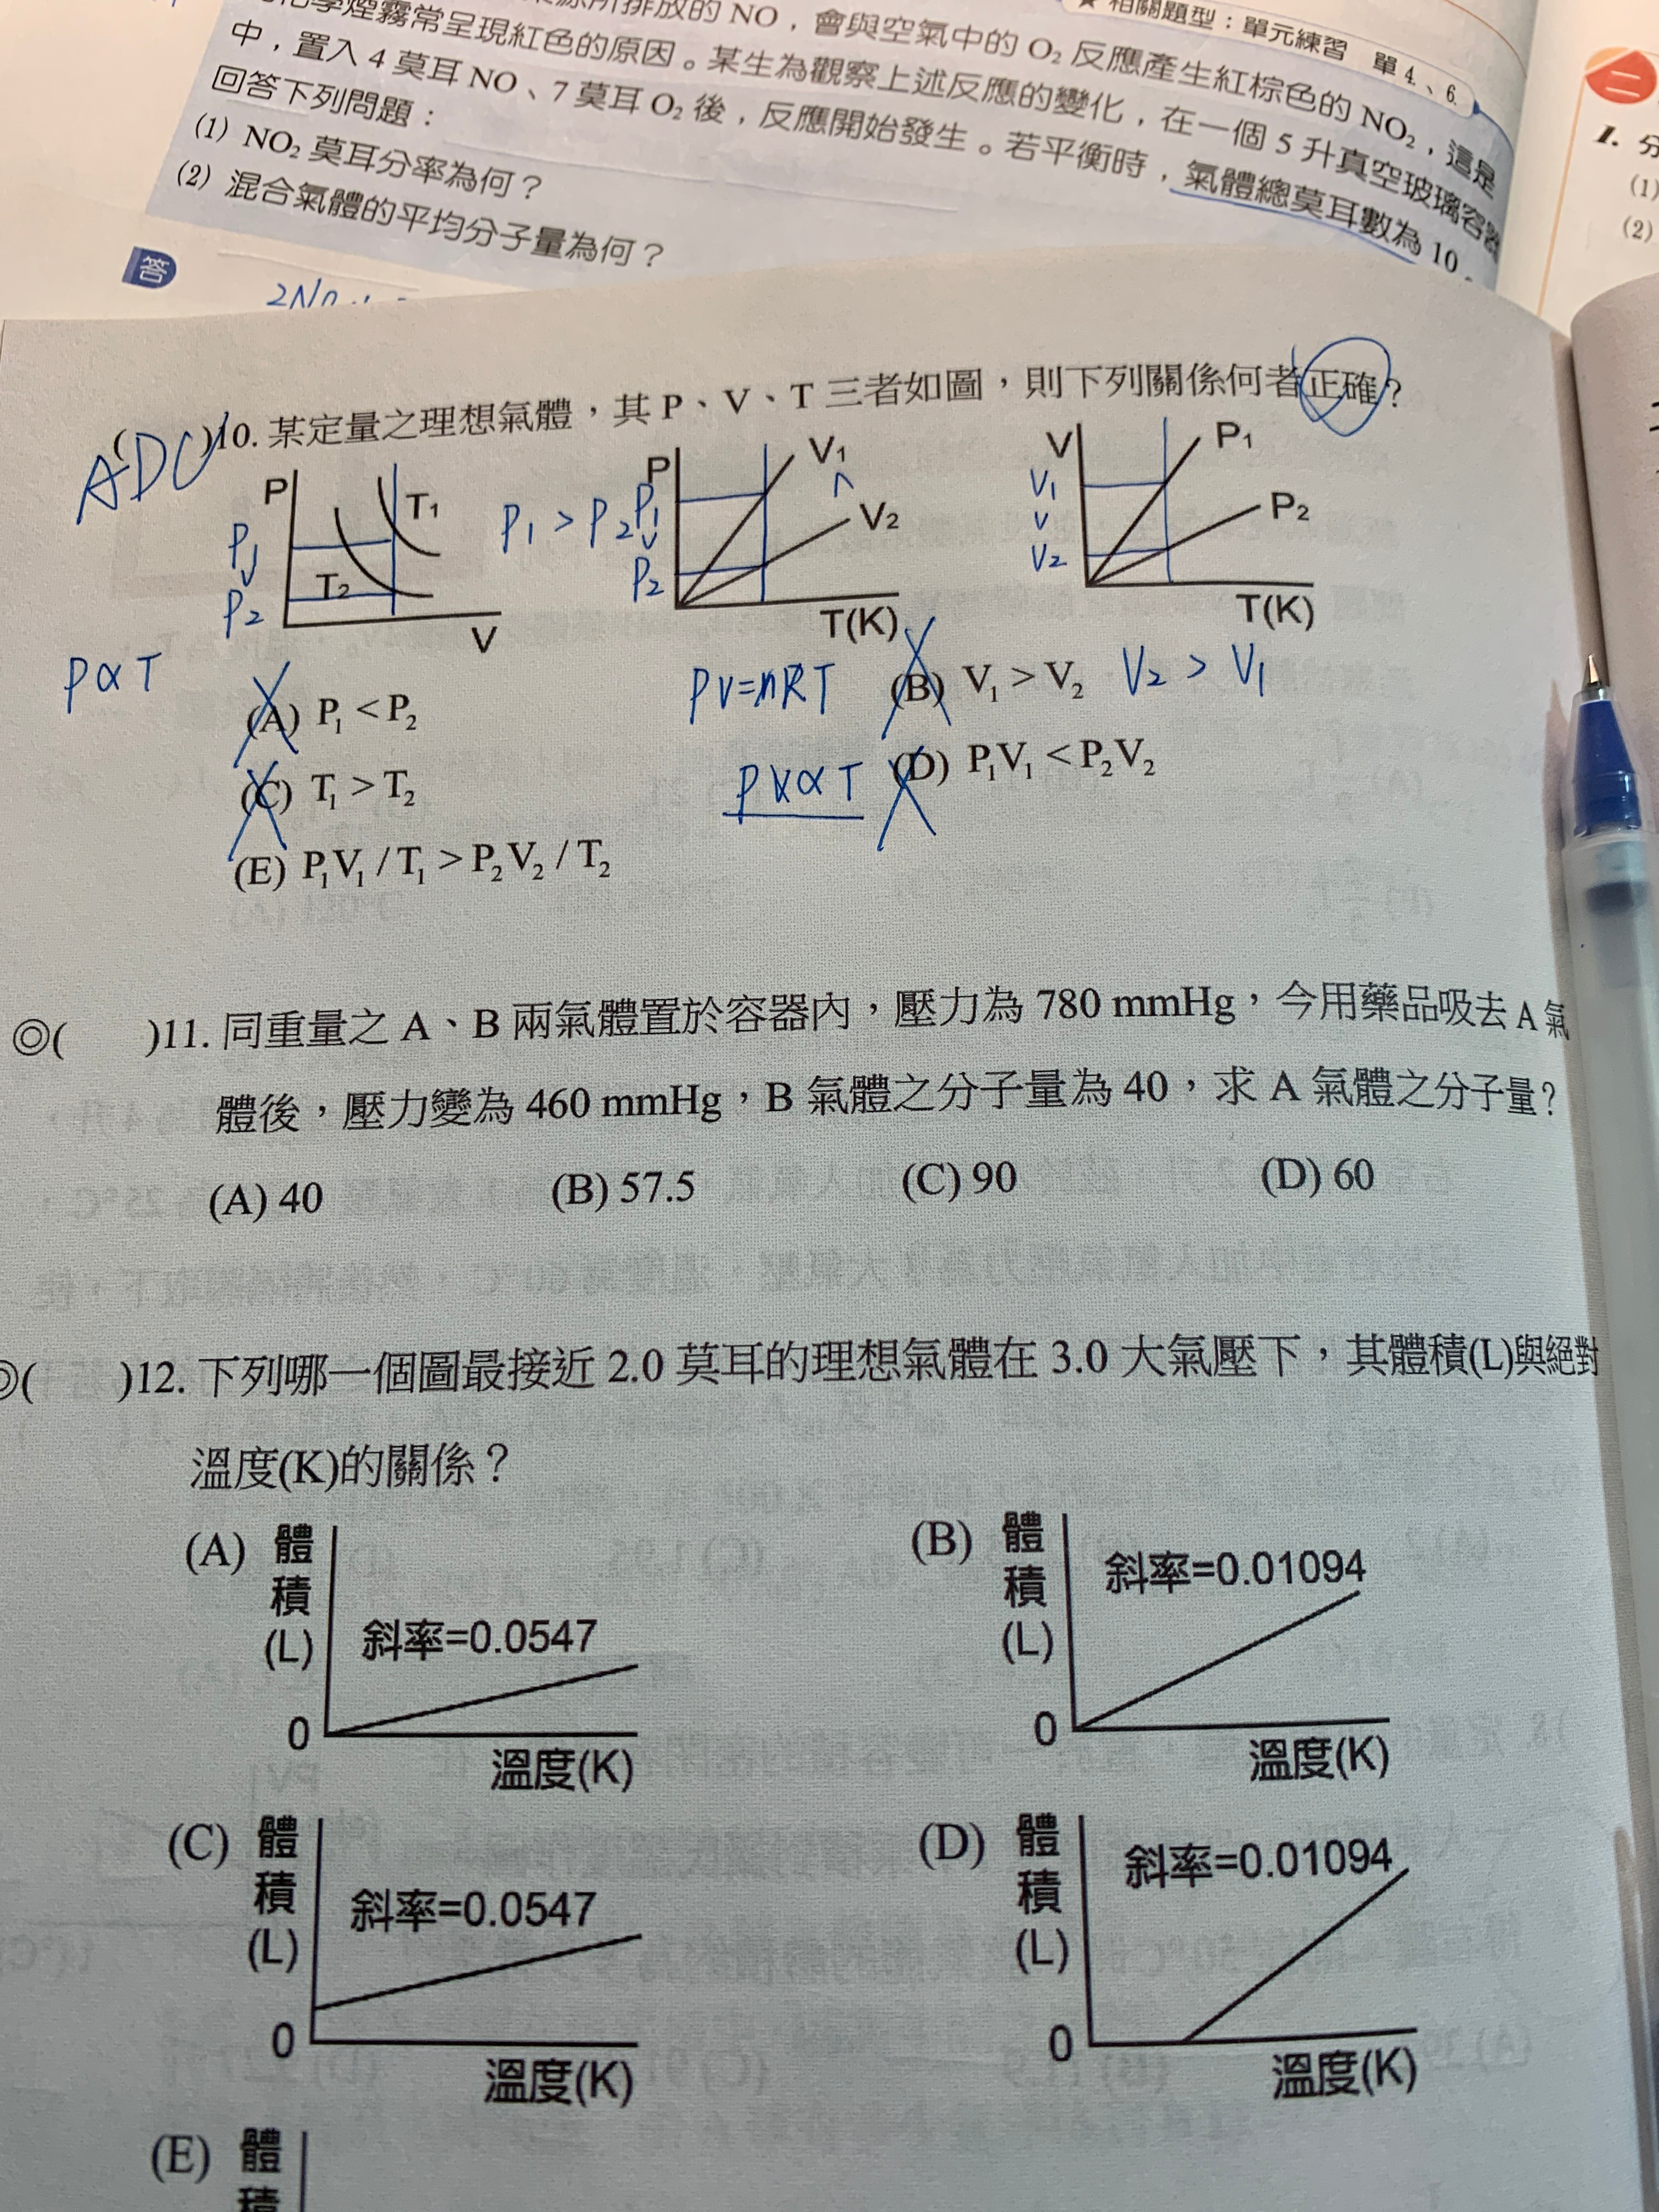 ★ 相關題型：單元練習 單 4.、6.
排放的 NO，會與空氣中的 O₂ 反應產生紅棕色的 NO₂，這是
化學煙霧常呈現紅色的原因。某生為觀察上述反應的變化，在一個 5 升真空玻璃容器
中，置入 4 莫耳 NO、7 莫耳 O₂ 後，反應開始發生。若平衡時，氣體總莫耳數為 10。
回答下列問題：
(1) NO₂ 莫耳分率為何？
(2) 混合氣體的平均分子量為何？
答
二
1. 分
(1)
(2)
ADC
( )10. 某定量之理想氣體，其 P、V、T 三者如圖，則下列關係何者正確？
P
T₁
T₂
V
P₁
∨
P₂
P₁ > P₂
P
V₁
∧
V₂
T(K)
P₁
∨
P₂
V
P₁
P₂
T(K)
V₁
∨
V₂
P∝T
PV=nRT
PV∝T
(A) P₁ < P₂
(B) V₁ > V₂
V₂ > V₁
(C) T₁ > T₂
(D) P₁V₁ < P₂V₂
(E) P₁V₁ / T₁ > P₂V₂ / T₂
◎( )11. 同重量之 A、B 兩氣體置於容器內，壓力為 780 mmHg，今用藥品吸去 A 氣
體後，壓力變為 460 mmHg，B 氣體之分子量為 40，求 A 氣體之分子量？
(A) 40 (B) 57.5 (C) 90 (D) 60
◎( )12. 下列哪一個圖最接近 2.0 莫耳的理想氣體在 3.0 大氣壓下，其體積(L)與絕對
溫度(K)的關係？
(A) 體積(L)
斜率=0.0547
0
溫度(K)
(B) 體積(L)
斜率=0.01094
0
溫度(K)
(C) 體積(L)
斜率=0.0547
0
溫度(K)
(D) 體積(L)
斜率=0.01094
0
溫度(K)
(E) 體積